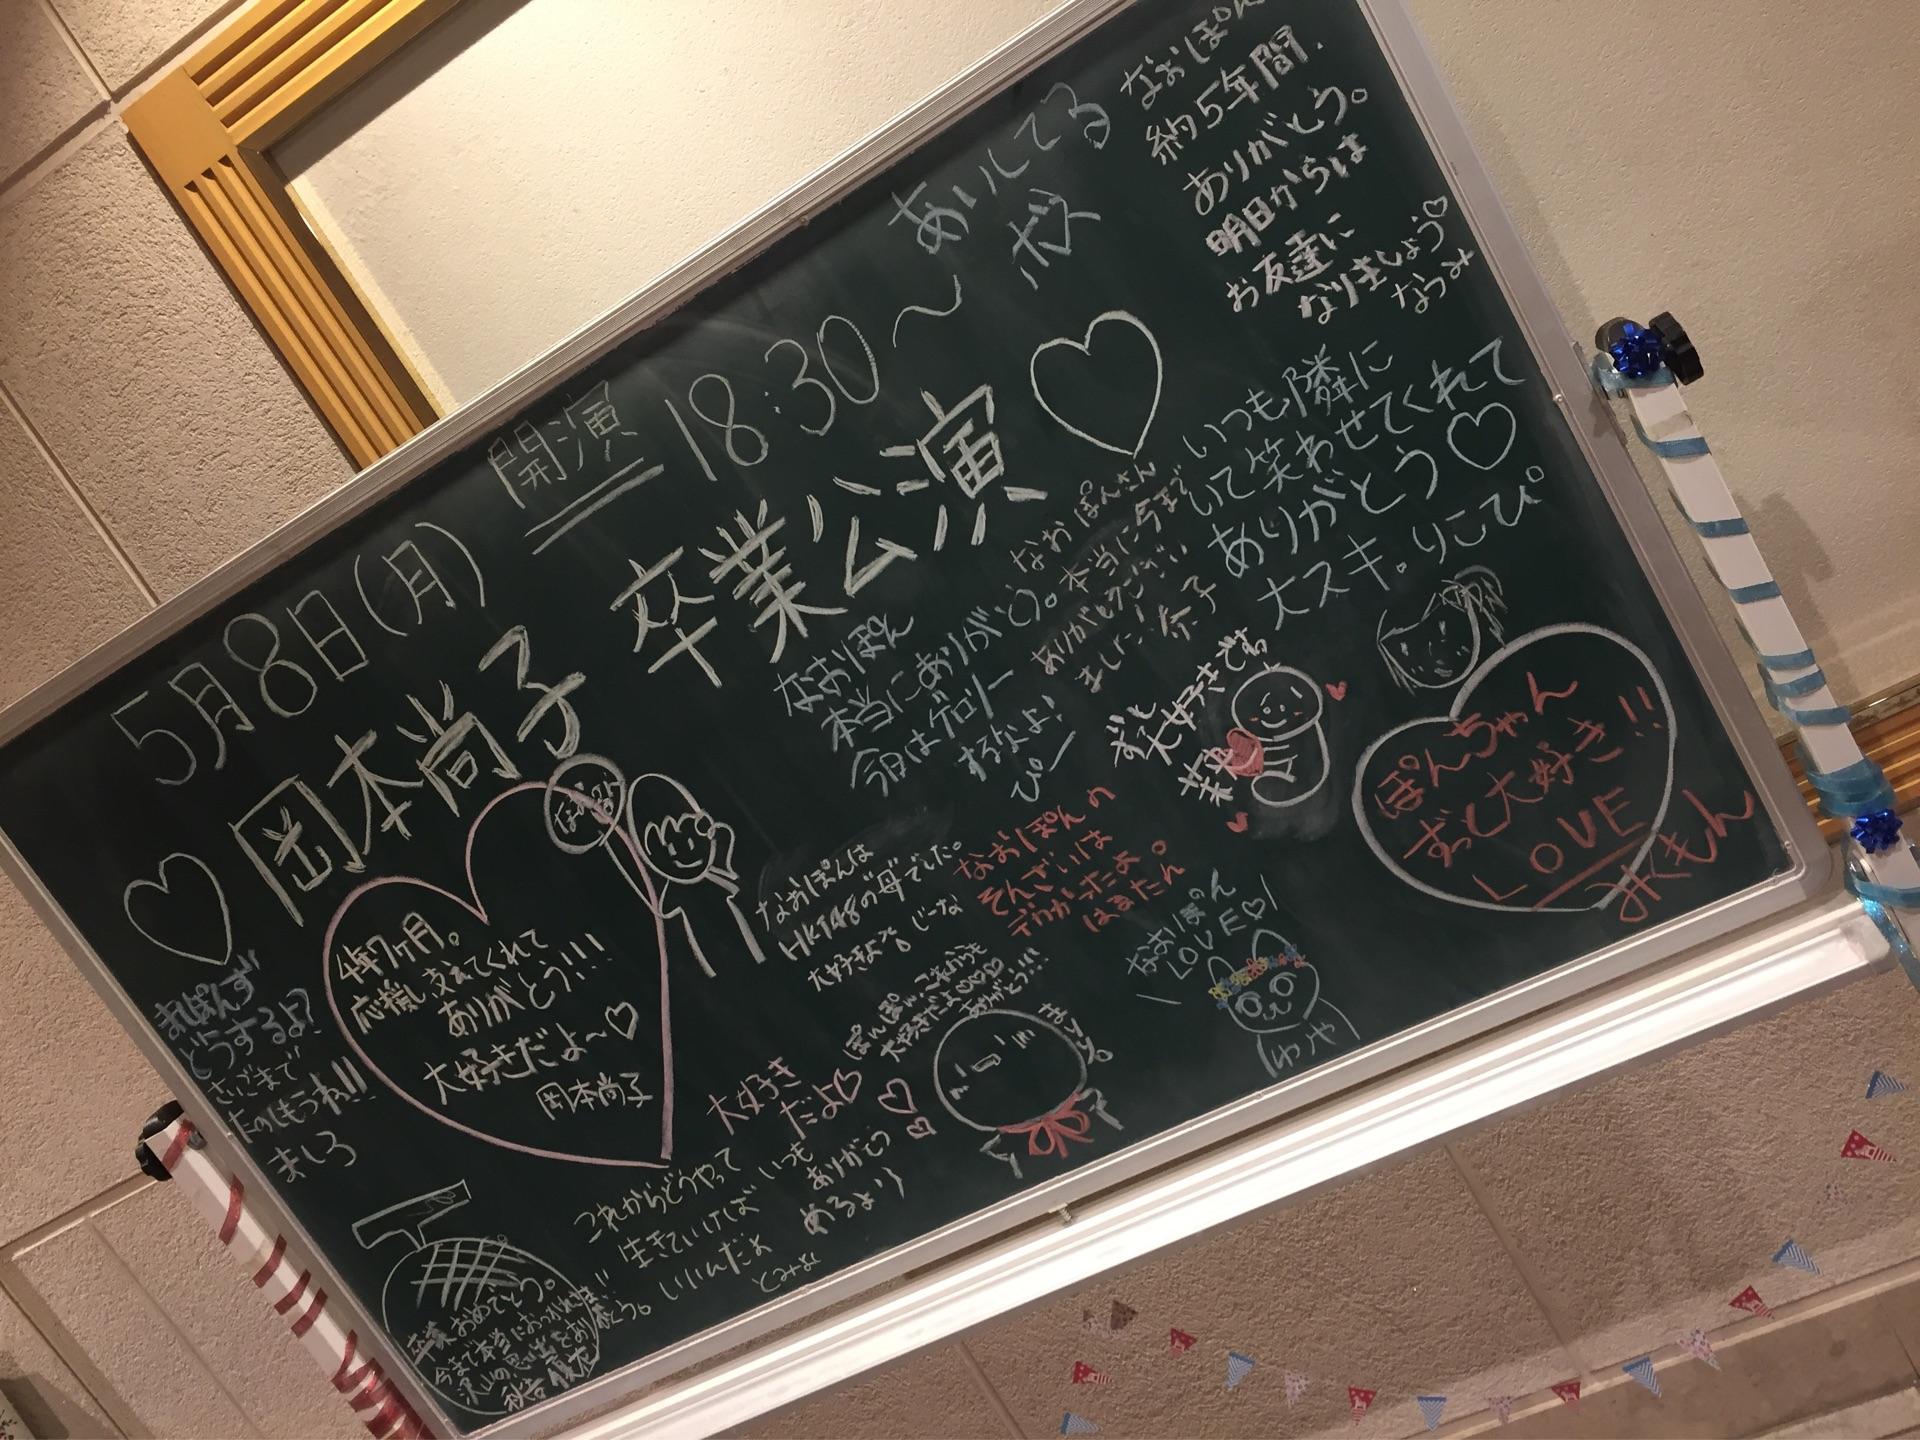 5月8日(月)
開演 18:30〜
♡岡本尚子 卒業公演♡
あいしてる
ボス
なおぽん
約5年間.
ありがとう。
明日からは
お友達に
なりましょう♡
なつみ
いつも隣に
いて笑わせてくれて
ありがとう♡
大スキ。りこぴ
なおぽんさん
本当に今まで
ありがとうござい
ました! 奈子
なおぽん
本当にありがとう。
今日はゲロリー
するなよ!
ぴー
ずっと
大好きです
菜央
ぽんちゃん
ずっと大好き!!
LOVE
みくもん
4年7ヶ月。
応援し支えてくれて
ありがとう!!!
大好きだよ〜♡
岡本尚子
なおぽんは
HKT48の母でした。
大好きよ。じーな
なおぽんの
そんざいは
デカかったよ。
はまたん
なおぽん
LOVE♡
ゆうや
ぽんぽん…これからも
大好きだよ♡♡♡
ありがとう!!!
まりりん
まぽんず
どうするよ?
さいごまで
たのしもうね!!!
ましろ
大好き
だよ♡
いつも
ありがとう
めるより
これからどうやって
生きていけば
いいんだよ
とみよし
卒業、おめでとう。
今まで本当におつかれさま!!
沢山の思い出をありがとう。
秋吉優花